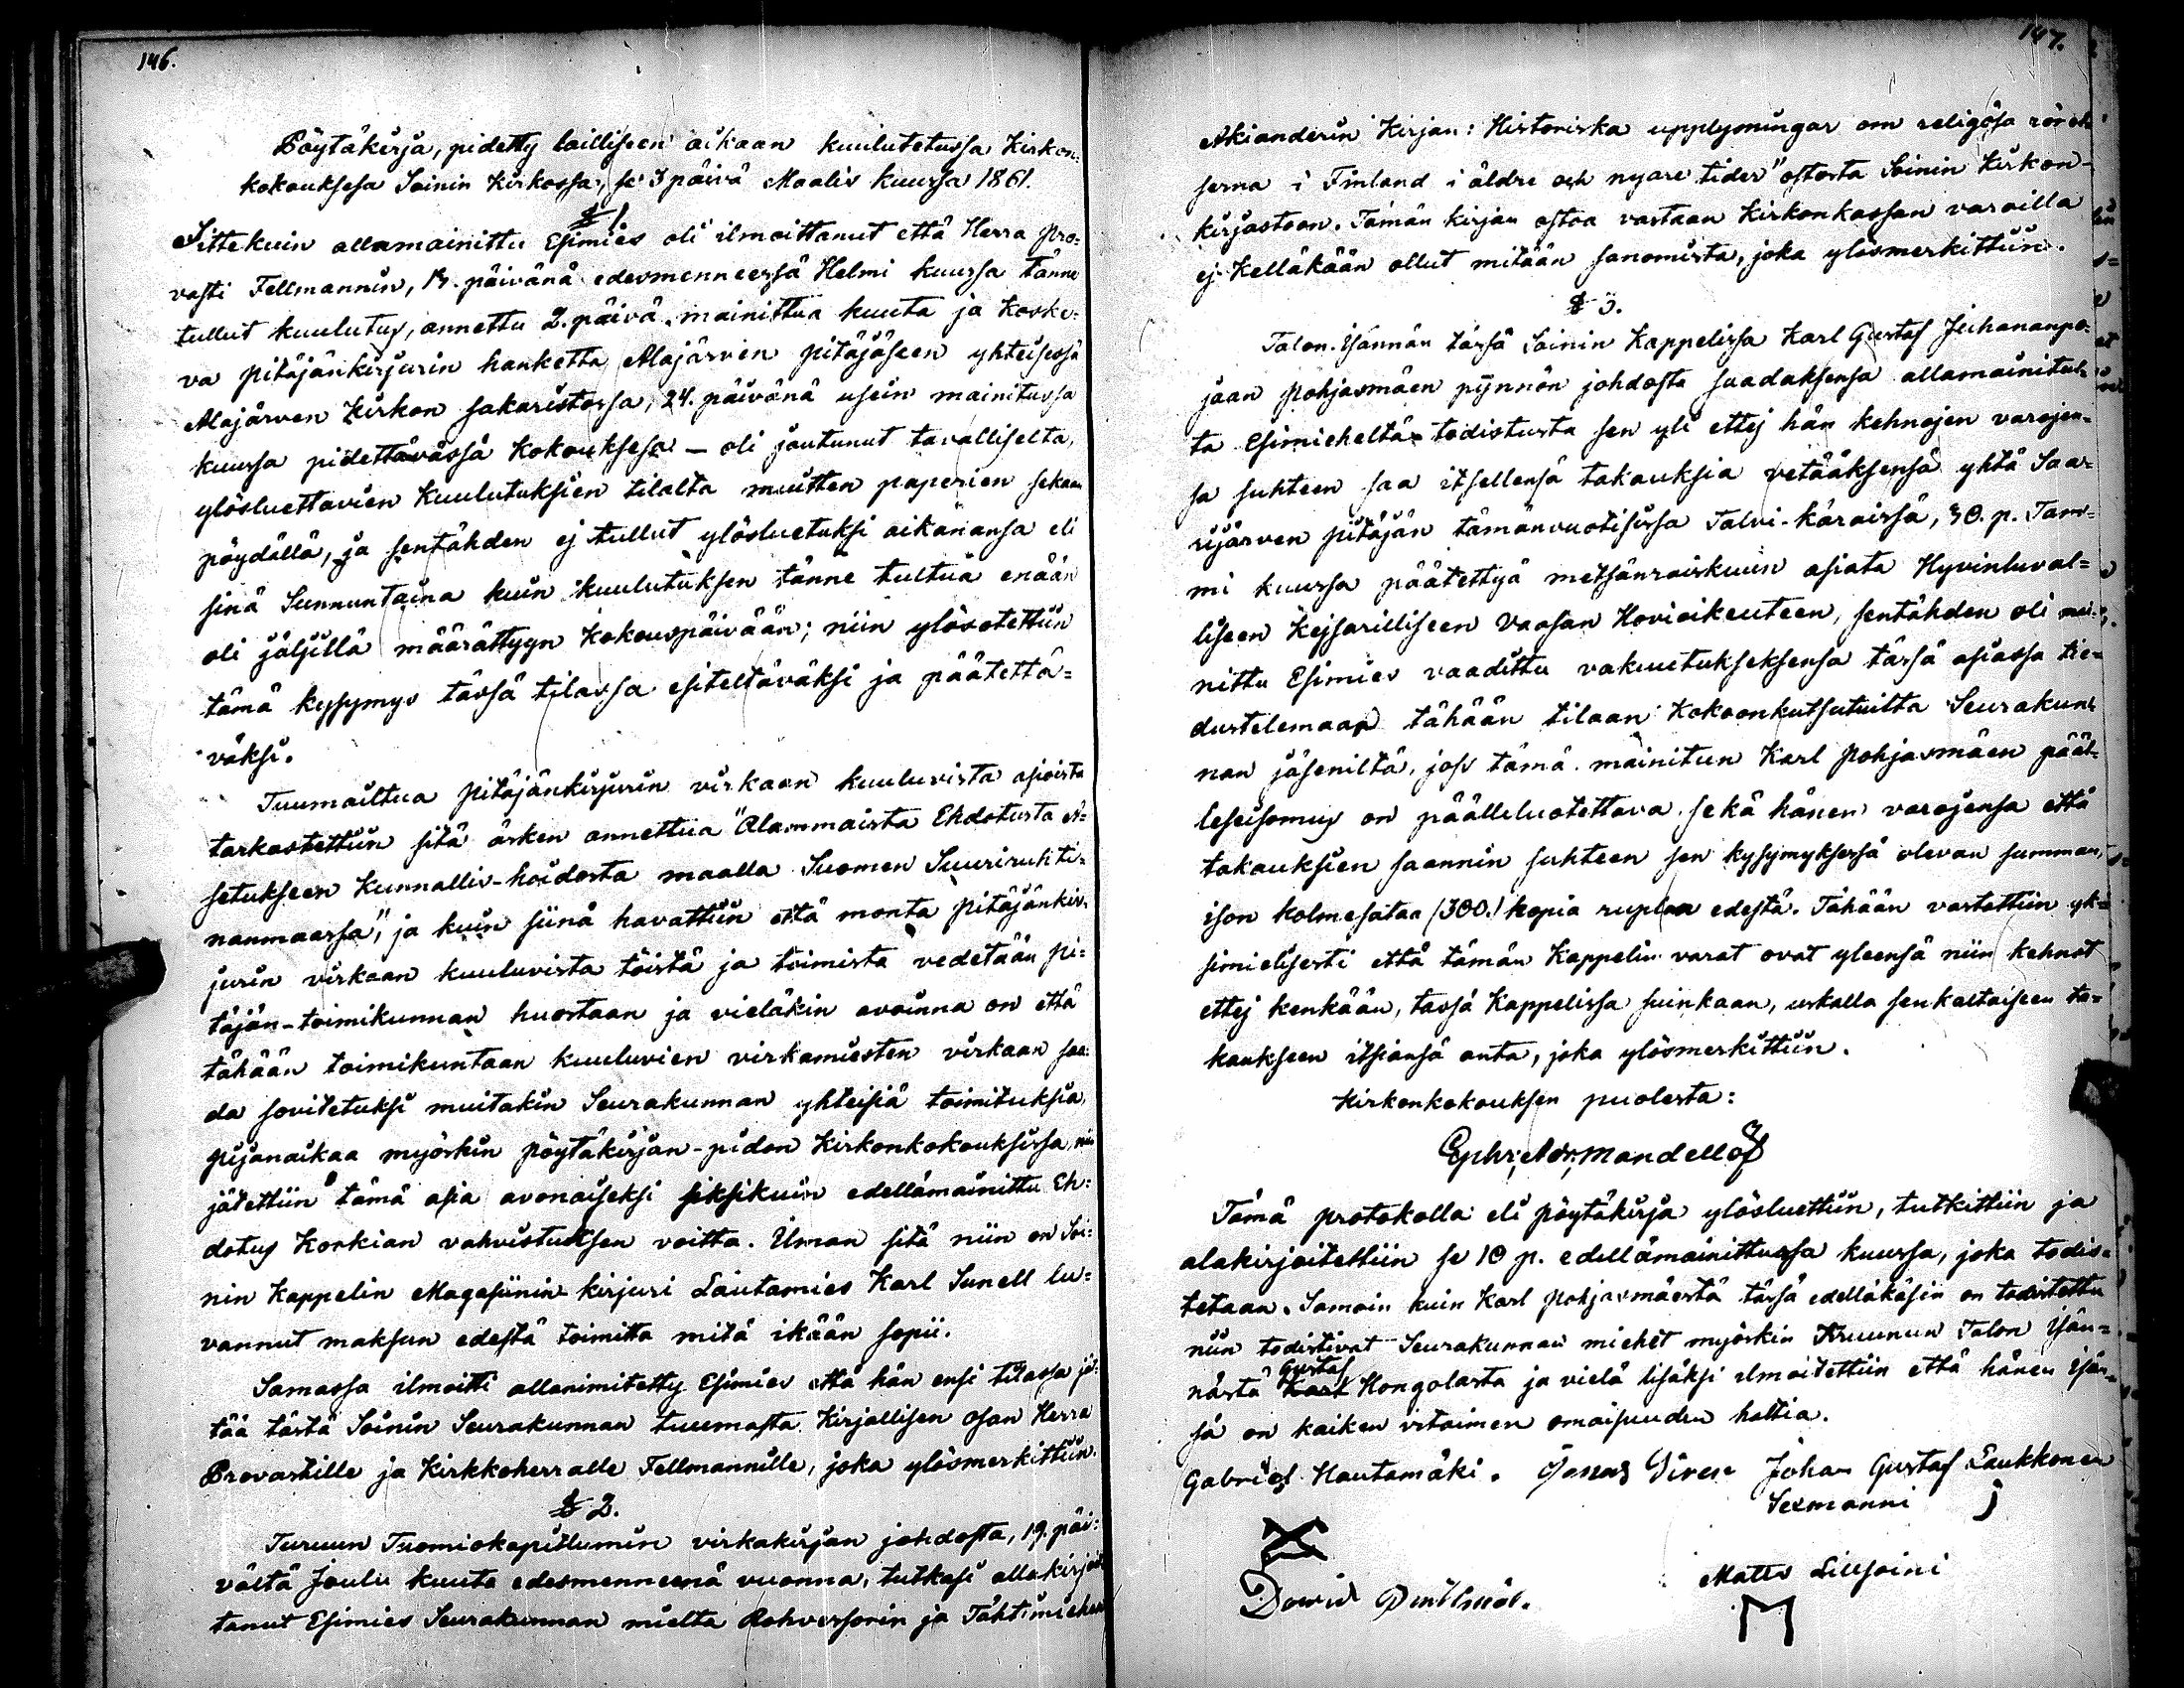 146.
Pöytäkirja, pidetty lailliseen aikaan kuulutetussa Kirkon-
kokouksessa Soinin Kirkossa, se 3 päivä Maalis kuussa 1861.
§ 1.
Sittekuin allamainittu Esimies oli ilmoittanut että Herra Pro-
vasti Fellmannin, päivänä edesmenneessä Helmi kuussa tänne
tullut kuulutus, annettu 2. päivä mainittua kuuta ja koske-
va pitäjänkirjurin hanketta Alajärvin pitäjäseen yhteisessä
Alajärven Kirkon sakaristossa, 24. päivänä usein mainitussa
kuussa pidettävässä Kokouksessa — oli joutunut tavalliselta,
ylösluettavien Kuulutuksien tilalta muitten paperien sekaan
pöydällä, ja sentähden ej tullut ylösluetuksi aikanansa eli
sinä Sunnuntaina kuin kuulutuksen tänne tultua enään
oli jäljillä määrättyyn Kokouspäivään; niin ylösotettiin
tämä kysymys tässä tilassa esiteltäväksi ja päätettä-
väksi.
Tuumailtua pitäjänkirjurin virkaan kuuluvista asioista
tarkastettiin sitä äsken annettua "Alammaista Ehdotusta A-
setukseen Kunnallis-hoidosta maalla Suomen Suuriruhti-
nanmaassa", ja kuin siinä havattiin että monta pitäjänkir-
jurin virkaan kuuluvista töistä ja toimista vedetään pi-
täjän-toimikunnan huostaan ja vieläkin avoinna on että
tähään toimikuntaan kuuluvien virkamiesten virkaan saa-
da sovitetuksi muitakin Seurakunnan yhteisiä toimituksia,
pijanaikaa myöskin pöytäkirjan-pidon Kirkonkokouksissa, niin
jätettiin tämä asia avonaiseksi siksikuin edellämainittu Eh-
dotus Korkian vahvistuksen voitta. Ilman sitä niin on Soi-
nin Kappelin Magasiinin kirjuri Lautamies Karl Sunell lu-
vannut maksun edestä toimitta mitä ikään sopii.
Samassa ilmoitti allanimitetty Esimies että hän ensi tilassa jä-
tää tästä Soinin Seurakunnan tuumasta Kirjallisen osan Herra
Provastille ja Kirkkoherralle Fellmannille, joka ylösmerkittiin.
§ 2.
Turuun Tuomiokapitlumin virkakirjan johdosta, 19. päi-
vältä Joulu kuuta edesmenneenä vuonna, tutkasi allakirjoit-
tanut Esimies Seurakunnan mielta Rohvessorin ja Tähtimiehen
147.
Akianderin Kirjan: Historiska upplysningar om religiösa rörel-
serna i Finland i äldre och nyare tider" ostosta Soinin Kirkon-
kirjastoon. Tämän kirjan ostoa vastaan Kirkonkassan varailla
ej Kelläkään ollut mitään sanomista, joka ylösmerkittiin.
§ 3.
Talon. Isännän tässä Soinin Kappelissa Karl Gustaf Juhananpo-
jaan Pohjasmäen pynnön johdosta saadaksensa allamainitul-
ta Esimieheltä todistusta sen yli ettej hän kehnojen varojen-
sa suhteen saa itsellensä takauksia vetääksensä yhtä Saa-
rijärven pitäjän tämänvuotisissa Talvi-käräissä, 30. p. Tam-
mi kuussa päätettyä metsänraiskuun asiata Hyvinluval-
liseen Kejsarilliseen Vaasan Hovioikeuteen, sentähden oli mai-
nittu Esimies vaadittu vakuutukseksensa tässä asiassa tie-
dustelemaan tähään tilaan Kokoonkutsutuilta Seurakun-
nan jäseniltä, joss tämä mainitun Karl Pohjasmäen pääl-
leseisomus on päälleluotettava sekä hänen varojensa että
takauksien saannin suhteen sen kysymyksessä olevan summan,
ison kolmesataa (300.) hopia ruplaa edestä. Tähään vastattiin yk-
simielisesti että tämän Kappelin varat ovat yleensä niin kehnot
ettej kenkään, tassä Kappelissa suinkaan, uskalla senkaltaiseen ta-
kaukseen itsiansä anta, joka ylösmerkittiin.
Kirkonkokouksen puolesta:
Mandellöf
Tämä protokolla eli pöytäkirja ylösluettiin, tutkittiin ja
alakirjoitettiin se 10 p. edellämainittussa kuussa, joka todis-
tetaan. Samoin kuin Karl Pohjasmäestä tässä edelläkäsin on todistettu
niin todistivat Seurakunnan miehet myöskin Kruunun Talon Isän-
nästä Gustaf Hongolasta ja vielä lisäksi ilmoitettiin että hänen Isän-
sä on kaiken irtaimen omaisuuden haltia.
Gabriel Hautamäki. Jonas Siren Johan Gustaf Laukkonen
Sexmanni
Matts Lillsoini
Dawid